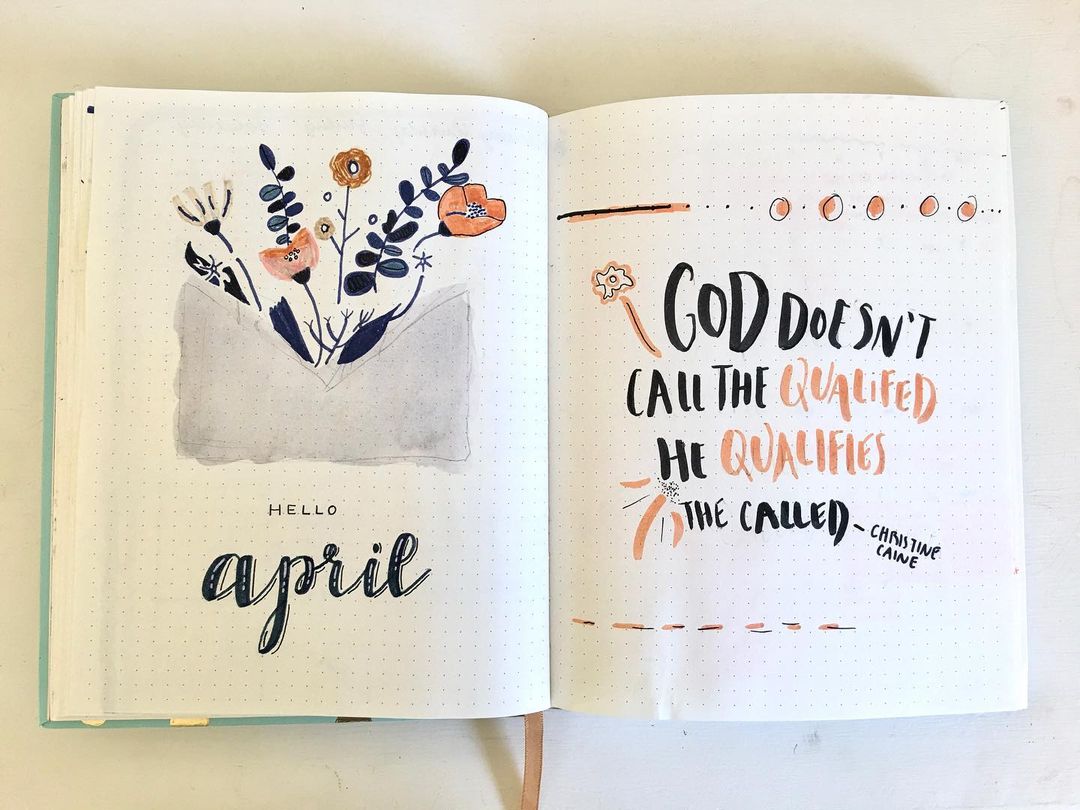 HELLO
april
GOD DOESN'T
CALL THE QUALIFED
HE QUALIFIES
THE CALLED - CHRISTINE
CAINE